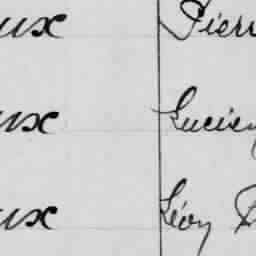 ux Pierr
ux Lucien
ux Léon